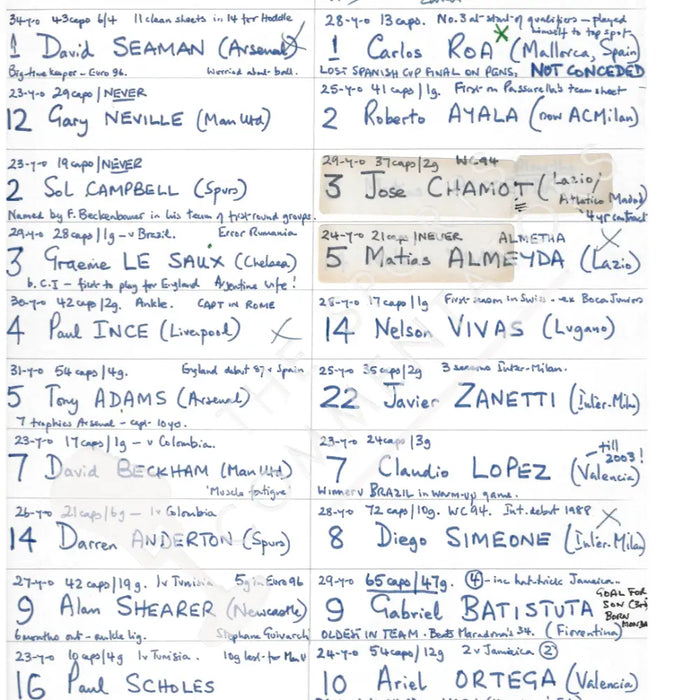 34-y-o 43caps 6/4 11 clean sheets in 14 for Hoddle
1 David SEAMAN (Arsenal)
Big-time keeper - Euro 96. Worried about ball.
23-y-o 29caps/NEVER
12 Gary NEVILLE (Man Utd)
23-y-o 19caps/NEVER
2 Sol CAMPBELL (Spurs)
Named by F. Beckenbauer in his team of first round groups.
29-y-o 28caps/1g - v Brazil. Error Rumania
3 Graeme LE SAUX (Chelsea)
b. C.I - first to play for England Argentine wife!
30-y-o 42caps/2g. Ankle. CAPT IN ROME
4 Paul INCE (Liverpool)
31-y-o 54caps/4g. England debut 87 v Spain
5 Tony ADAMS (Arsenal)
7 trophies Arsenal - capt. 10yo.
23-y-o 17caps/1g - v Colombia.
7 David BECKHAM (Man Utd)
'Muscle fatigue'
26-y-o 21caps/6g - 1v Colombia
14 Darren ANDERTON (Spurs)
27-y-o 42caps/19g. 1v Tunisia 5g in Euro 96
9 Alan SHEARER (Newcastle)
6 months out - ankle lig. Stephane Guivarc'h
23-y-o 10caps/4g 1v Tunisia. 10g last for Man U
16 Paul SCHOLES
28-y-o 13caps. No. 3 at start of qualifiers - played
himself to top spot
1 Carlos ROA (Mallorca, Spain)
LOST SPANISH CUP FINAL ON PENS, NOT CONCEDED
25-y-o 41caps/1g. First on Passarella's team sheet
2 Roberto AYALA (now AC Milan)
29-y-o 37caps/2g WC94
3 Jose CHAMOT (Lazio/
Atletico Madrid)
4yr contract
24-y-o 21caps/NEVER ALMETHA
5 Matias ALMEYDA (Lazio)
28-y-o 17caps/1g First season in Swiss - ex Boca Juniors
14 Nelson VIVAS (Lugano)
25-y-o 35caps/2g 3 seasons Inter-Milan.
22 Javier ZANETTI (Inter-Milan)
23-y-o 24caps/3g
7 Claudio LOPEZ (Valencia)
- till 2003!
Winner v BRAZIL in warm-up game.
28-y-o 72caps/10g. WC94. Int. debut 1988
8 Diego SIMEONE (Inter-Milan)
29-y-o 65caps/47g. 4 - inc hat-trick Jamaica
9 Gabriel BATISTUTA
GOAL FOR
SON
BORN
OLDEST IN TEAM - Beats Maradona's 34. (Fiorentina)
24-y-o 54caps/12g 2v Jamaica 2
10 Ariel ORTEGA (Valencia)
THE SPORTS
COMMENTATORS